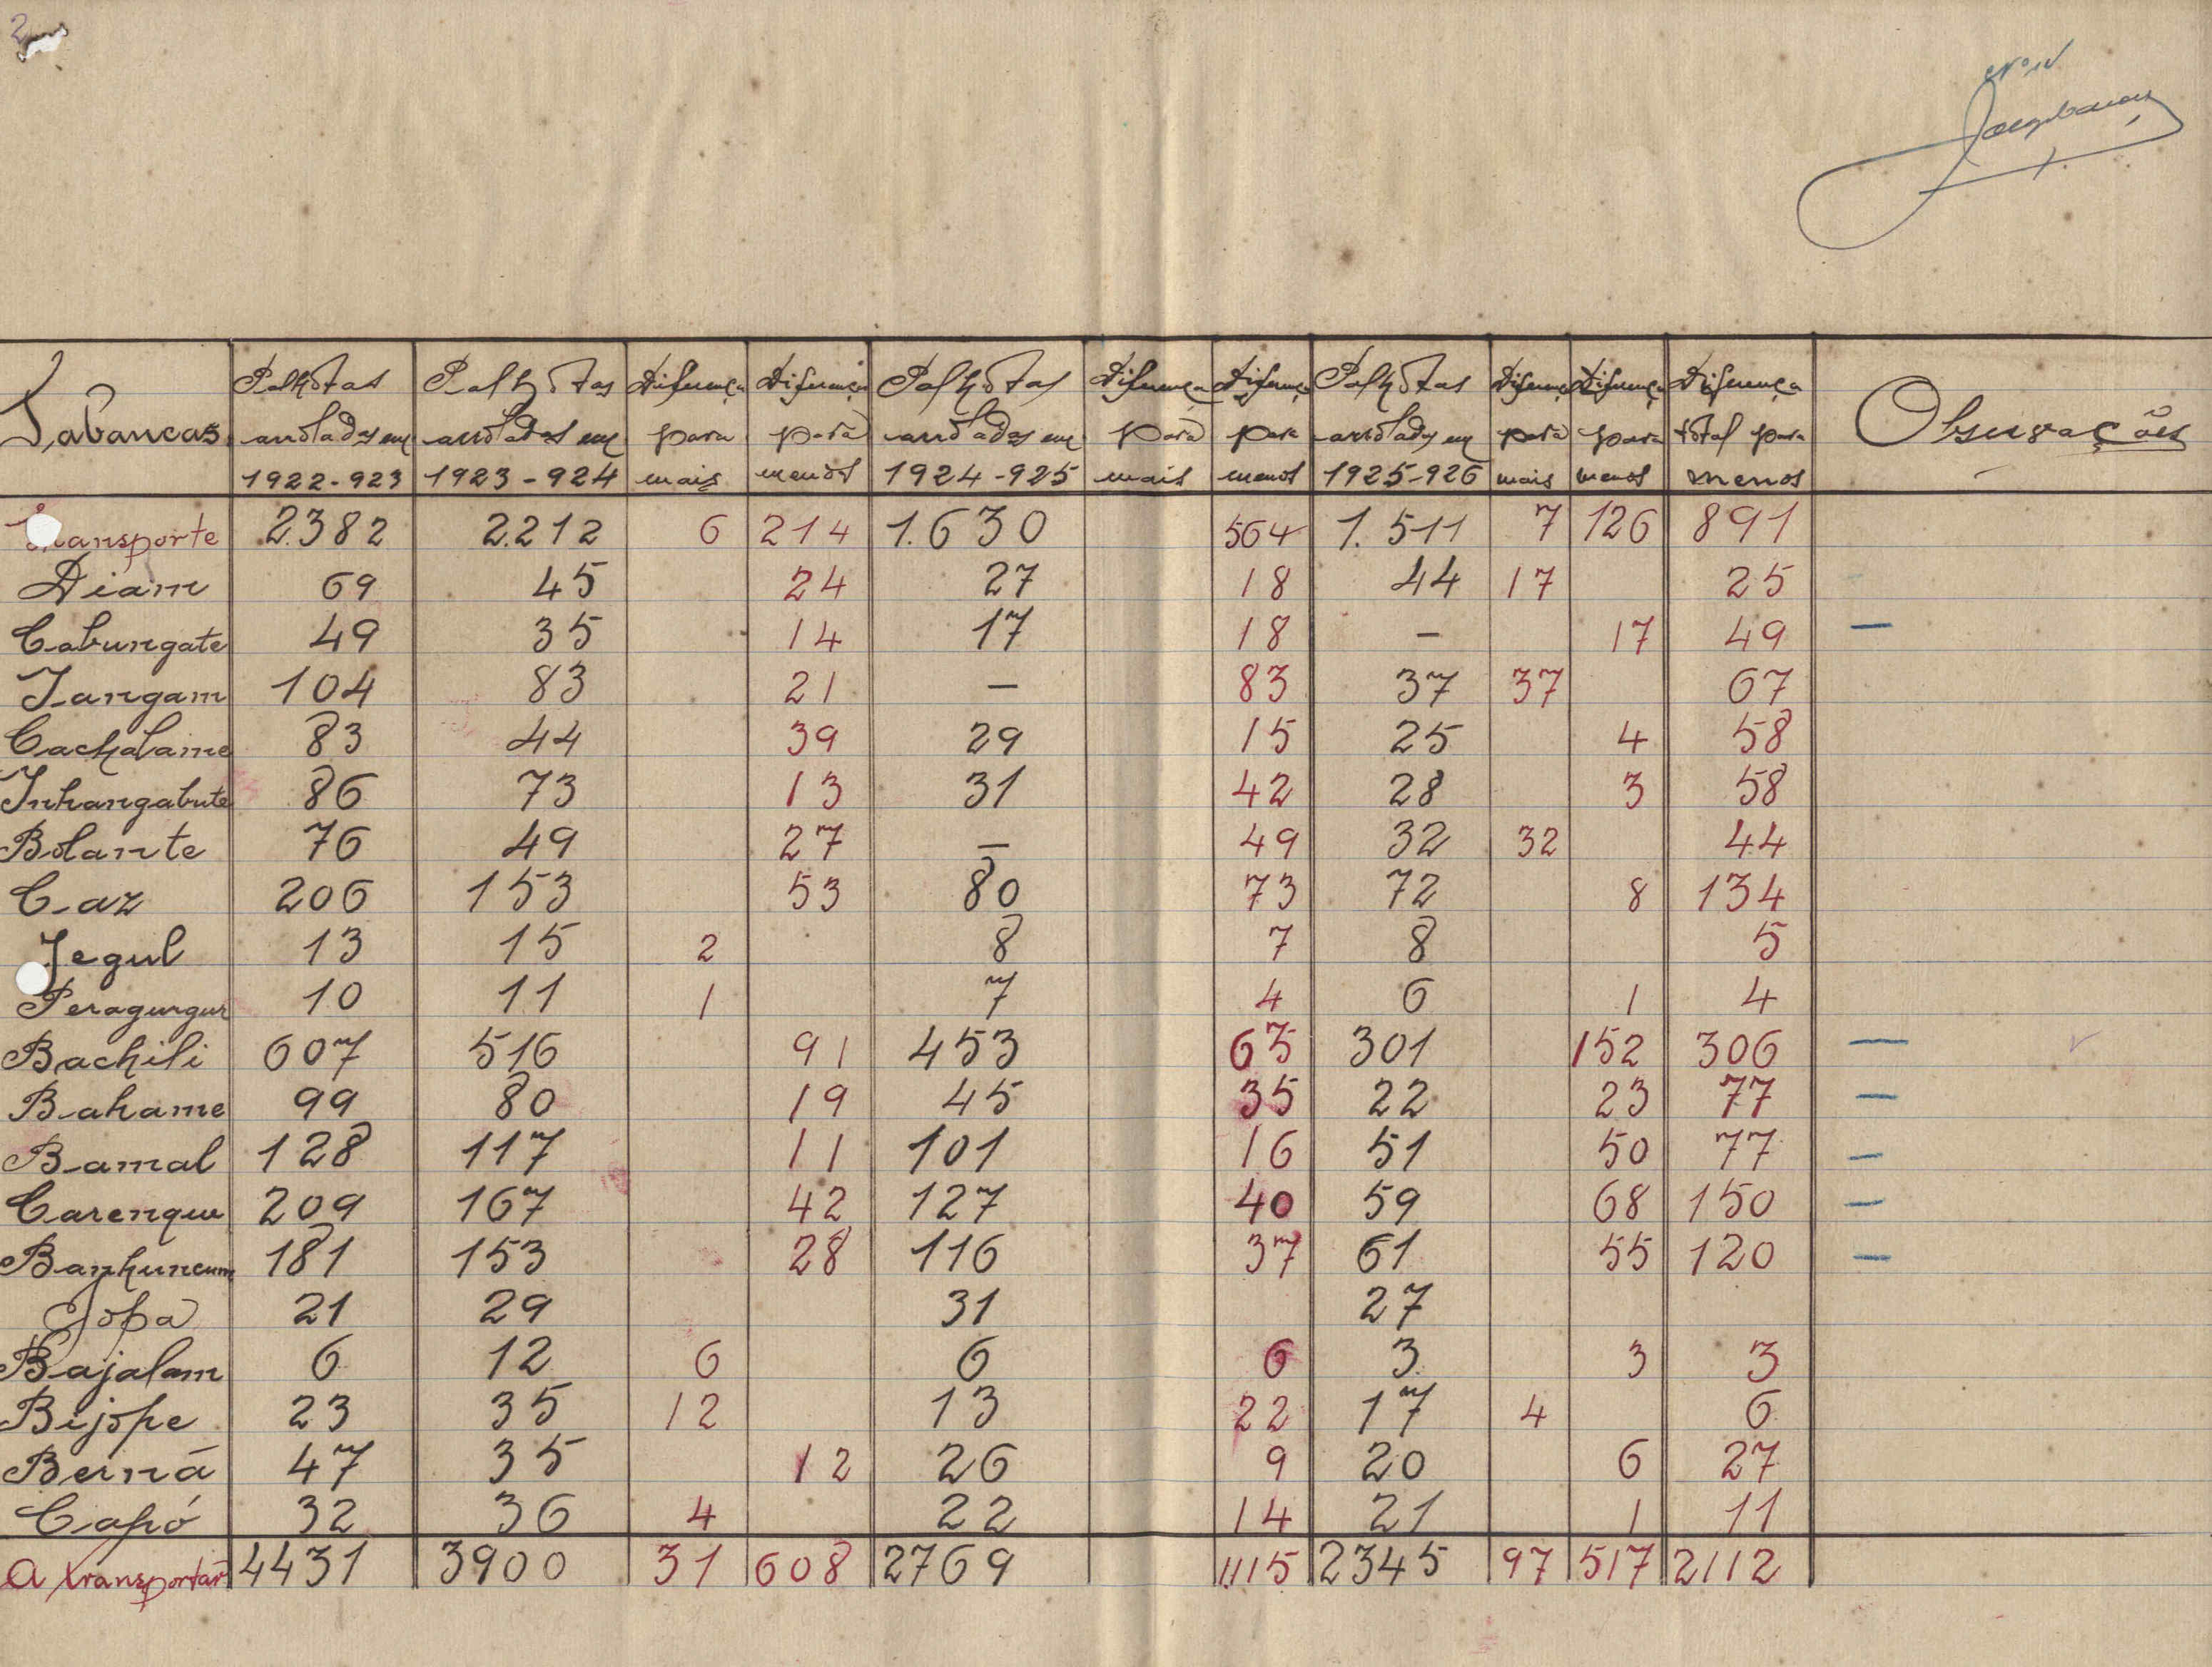 2
Nº IV
Tabancas Palhotas aroladas em 1922-923 Palhotas aroladas em 1923-924 Diferença para mais Diferença para menos Palhotas aroladas em 1924-925 Diferença para mais Diferença para menos Palhotas aroladas em 1925-926 Diferença para mais Diferença para menos Diferença total para menos Observações
Transporte 2.382 2.212 6 214 1.630 564 1.511 7 126 891
Diam 69 45 24 27 18 44 17 25
Cabungate 49 35 14 17 18 — 17 49 —
Jangam 104 83 21 — 83 37 37 67
Cachalame 83 44 39 29 15 25 4 58
Inhangabute 86 73 13 31 42 28 3 58
Bolante 76 49 27 — 49 32 32 44
Caz 206 153 53 80 73 72 8 134
Jegul 13 15 2 8 7 8 5
Peragungur 10 11 1 7 4 6 1 4
Bachili 607 516 91 453 63 301 152 306 —
Bahame 99 80 19 45 35 22 23 77 —
Bamal 128 117 11 101 16 51 50 77 —
Carenque 209 167 42 127 40 59 68 150 —
Banhuncum 181 153 28 116 37 61 55 120 —
Jopa 21 29 31 27
Bajalam 6 12 6 6 6 3 3 3
Bijope 23 35 12 13 22 17 4 6
Berná 47 35 12 26 9 20 6 27
Capó 32 36 4 22 14 21 1 11
A transportar 4431 3900 31 608 2769 1115 2345 97 517 2112